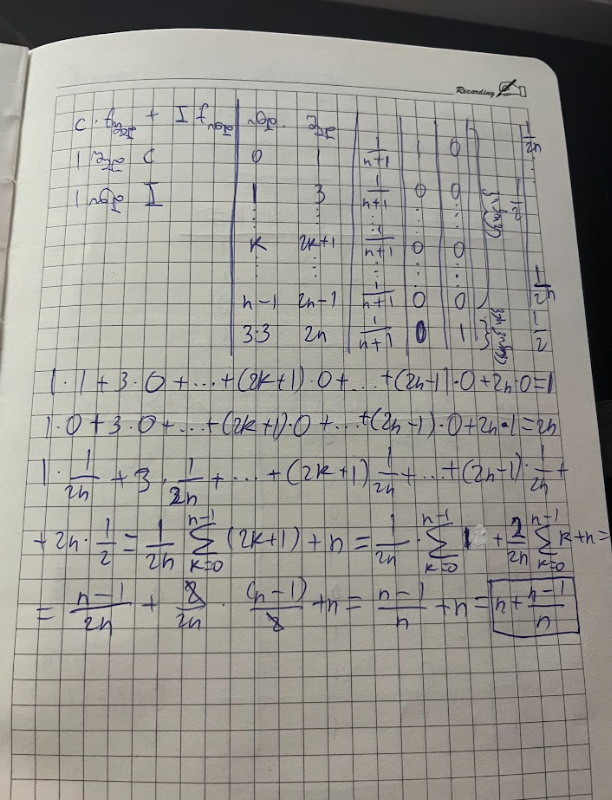 Recording
0 1 1/(n+1) 1 0 1/2n
1 3 1/(n+1) 0 0 1/2n
⋮ ⋮ ⋮ ⋮ ⋮
k 2k+1 1/(n+1) 0 0
⋮ ⋮ ⋮ ⋮ ⋮
n-1 2n-1 1/(n+1) 0 0 1/2n
3.3 2n 1/(n+1) 0 1 1/2
1·1+3·0+...+(2k+1)·0+...+(2n-1)·0+2n·0=1
1·0+3·0+...+(2k+1)·0+...+(2n-1)·0+2n·1=2n
1·1/2n + 3·1/2n + ... + (2k+1) 1/2n + ... + (2n-1)·1/2n +
+2n·1/2 = 1/2n ∑_{k=0}^{n-1} (2k+1) + n = 1/2n · ∑_{k=0}^{n-1} 1 + 2/2n ∑_{k=0}^{n-1} k + n =
= (n-1)/2n + 2/2n · (n-1)/2 + n = (n-1)/n + n = n + (n-1)/n